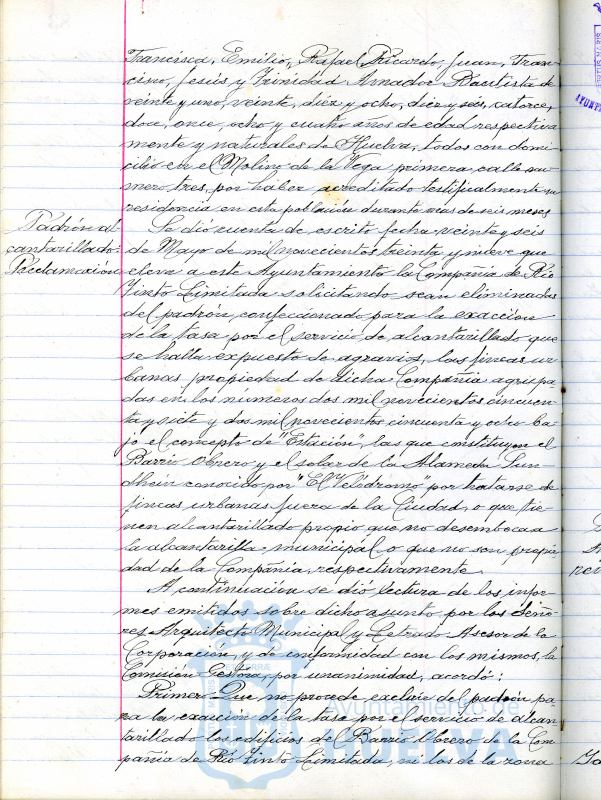 Francisca, Emilio, Rafael, Ricardo, Juan, Fran-
cisco, Jesús y Trinidad Amador Bautista de
veinte y uno, veinte, diez y ocho, diez y seis, catorce,
doce, once, ocho y cuatro años de edad respectiva
mente y naturales de Huelva, todos con domi
cilio en el Molino de la Vega primera calle nu-
mero tres, por haber acreditado testificalmente su
residencia en esta población durante mas de seis meses
Padrón al
cantarillado:
Reclamación
Se dió cuenta de escrito fecha veinte y seis
de Mayo de mil novecientos treinta y nueve que
eleva a este Ayuntamiento la Compañia de Rio
Tinto Limitada solicitando sean eliminadas
del padrón, confeccionado para la exacción
de la tasa por el servicio de alcantarillado que
se halla expuesto de agravios, las fincas ur-
banas propiedad de dicha Compañia agrupa
das en los números dos mil novecientos cincuen
ta y siete y dos mil novecientos cincuenta y ocho ba-
jo el concepto de "Estación", las que constituyen el
Barrio Obrero y el solar de la Alameda Sun-
dheim conocido por "El Velódromo" por tratarse de
fincas urbanas fuera de la Ciudad, o que tie-
nen alcantarillado propio que no desemboca a
la alcantarilla municipal o que no son propie
dad de la Compañia, respectivamente.
A continuación se dió lectura de los infor-
mes emitidos sobre dicho asunto por los Seño-
res Arquitecto Municipal y Letrado Asesor de la
Corporación, y de conformidad con los mismos, la
Comisión Gestora, por unanimidad, acordó:
Primero: Que no procede excluir del padrón pa-
ra la exacción de la tasa por el servicio de alcan
tarillado los edificios del Barrio Obrero de la Com
pañia de Rio Tinto Limitada, ni los de la zona
Ayuntamiento de
HUELVA